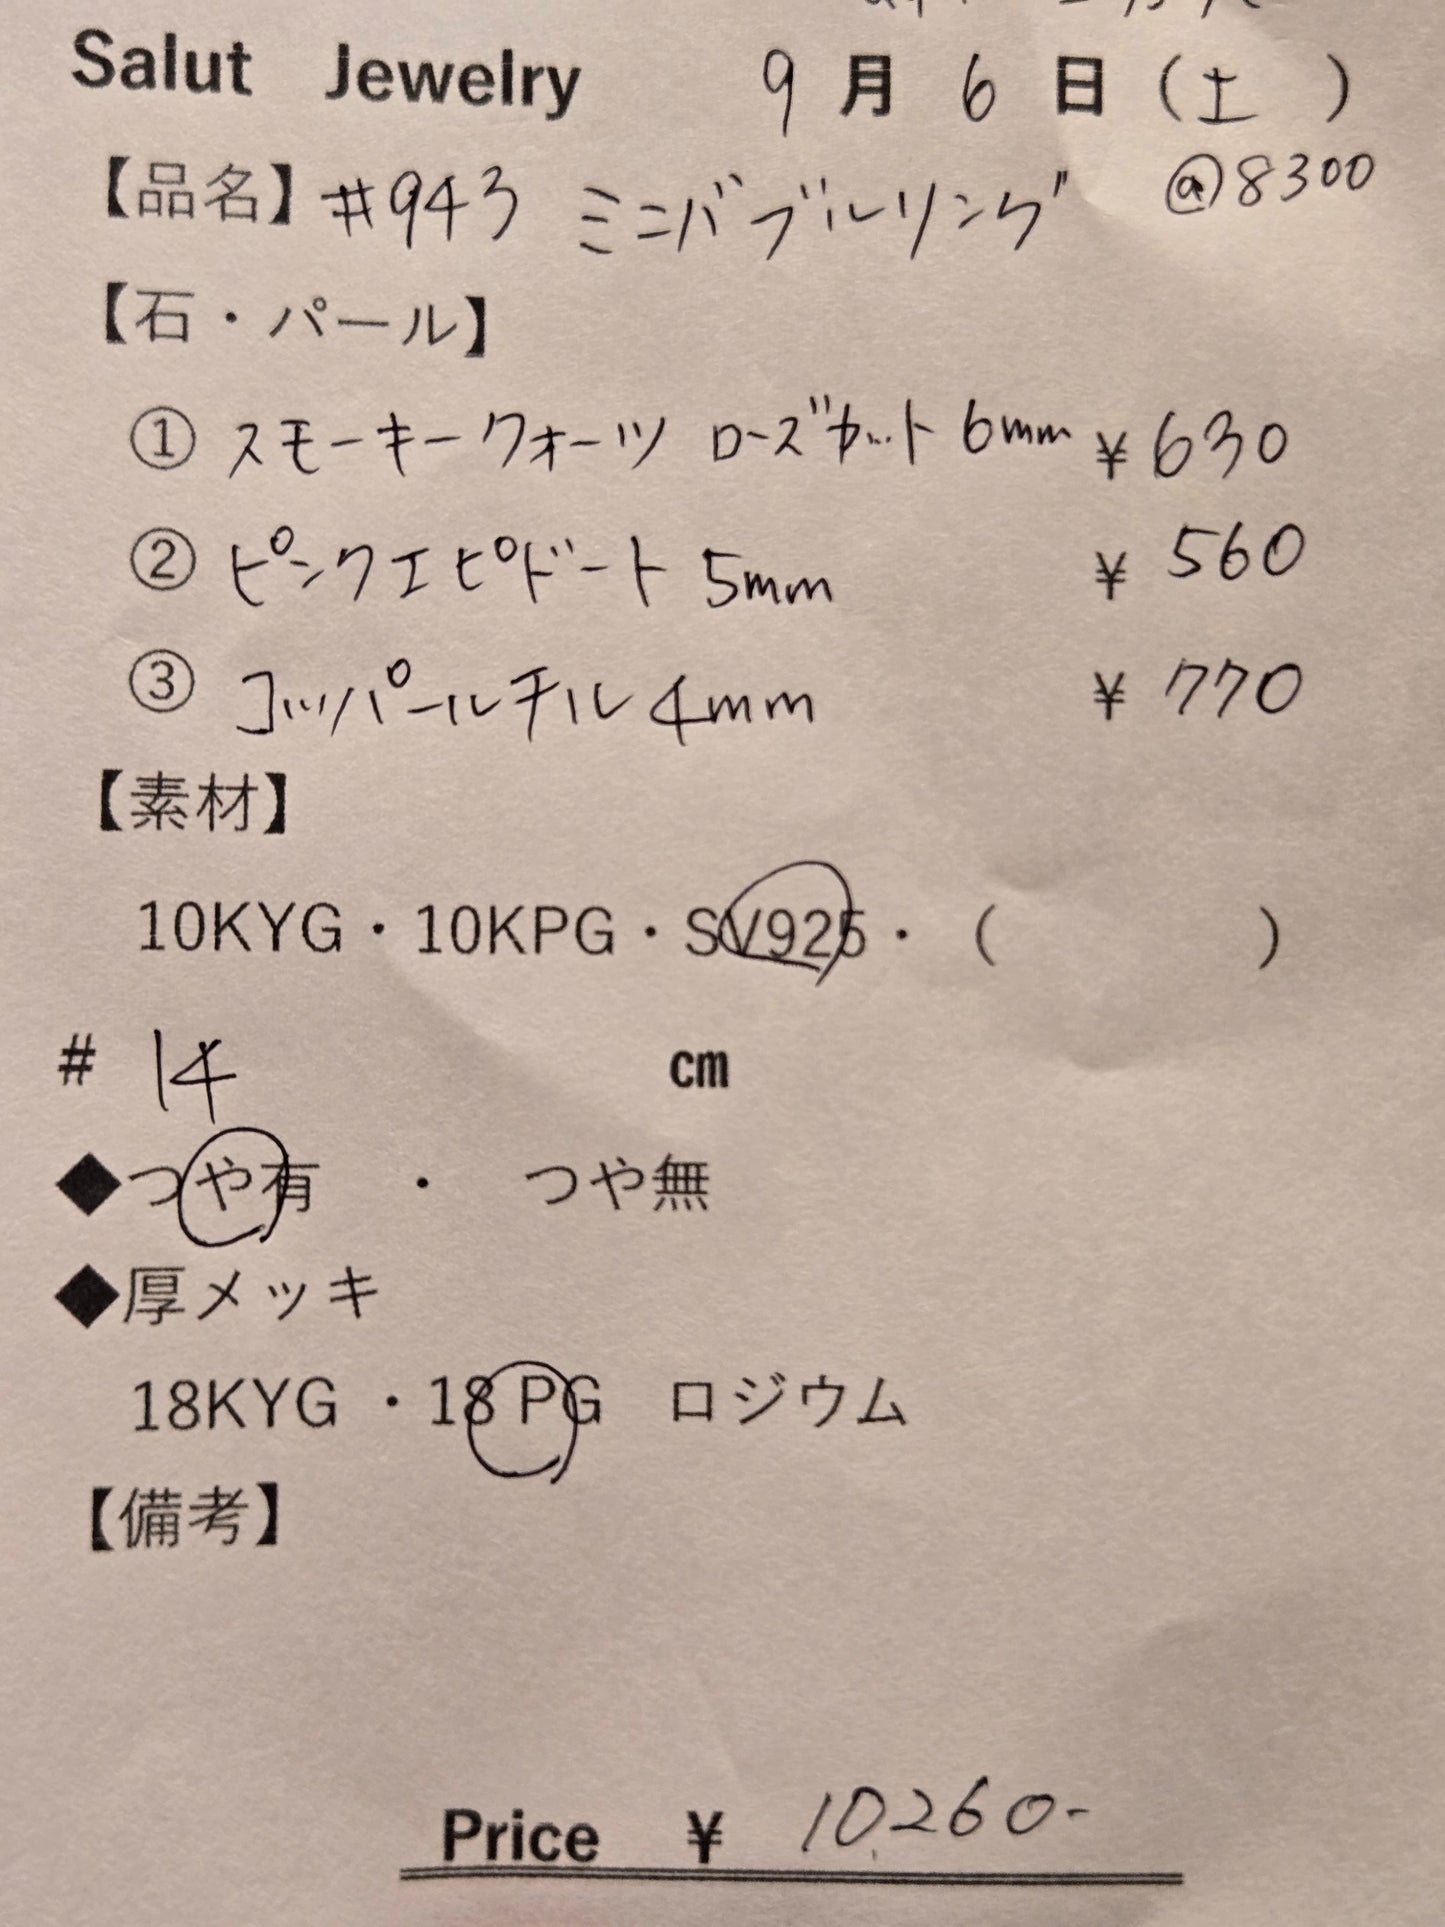 Salut Jewelry 9月6日(土 )
【品名】#943 ミニバブルリング @8300
【石・パール】
① スモーキークォーツ ローズカット 6mm ¥630
② ピンクエピドート 5mm ¥560
③ コッパールチル 4mm ¥770
【素材】
10KYG・10KPG・SV925・( )
# 14 cm
◆つや有 ・ つや無
◆厚メッキ
18KYG ・18 PG ロジウム
【備考】
Price ¥ 10,260-